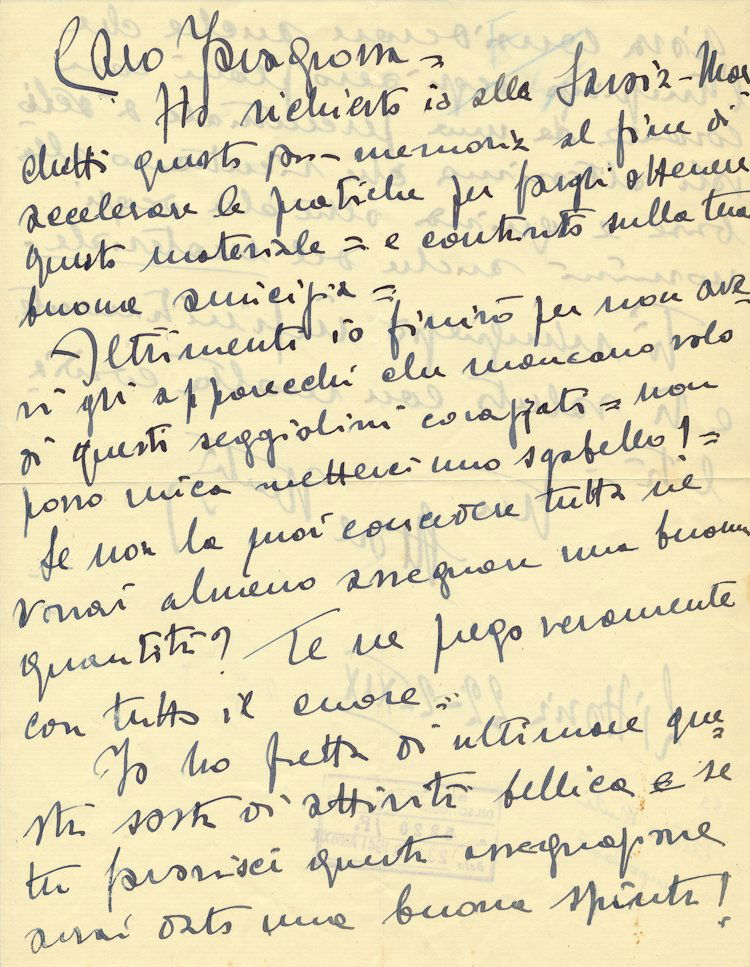 Caro Favagrossa =
Ho richiesto io alla Savoia-Mar
chetti questo pro-memoria al fine di
accelerare le pratiche per fargli ottenere
questo materiale = e contento sulla tua
buona amicizia =
Altrimenti io finirò per non aver
vi gli apparecchi che mancano solo
di questi seggiolini corazzati = non
posso mica metterci uno sgabello! =
Se non la puoi concedere tutta ne
vorrai almeno assegnare una buona
quantità? Te ne prego veramente
con tutto il cuore =
Io ho fretta di ultimare que=
sta sosta di attività bellica e se
tu fornisci questa assegnazione
avrai dato una buona spinta!